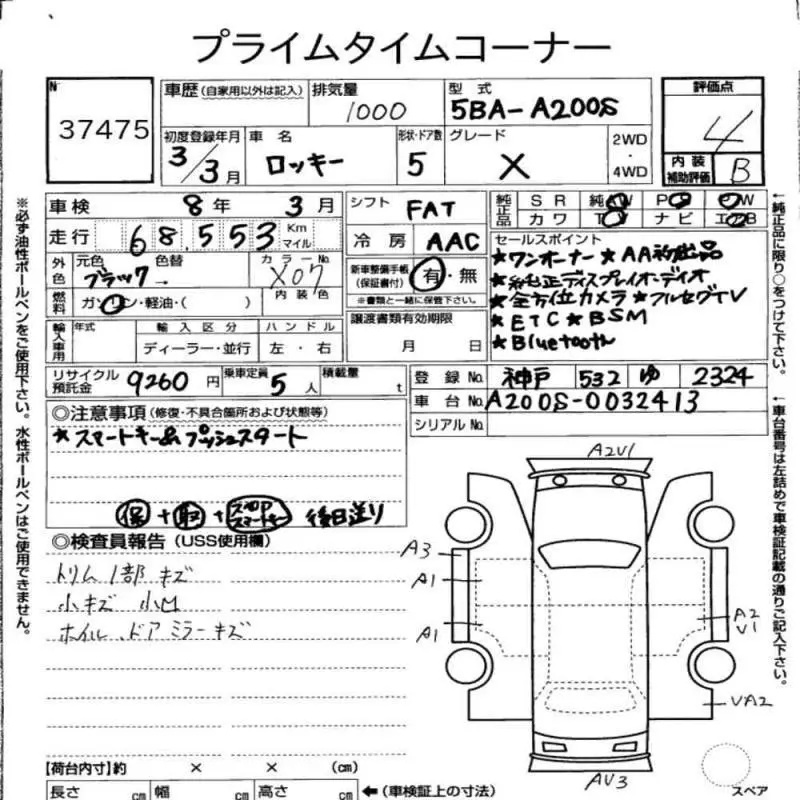 プライムタイムコーナー
№
37475
車歴 (自家用以外は記入)
排気量
1000
型式
5BA-A200S
評価点
4
初度登録年月
3/3月
車名
ロッキー
形状・ドア数
5
グレード
X
2WD
・
4WD
内装
補助評価
B
車検 8年 3月
走行 68,553 Km
マイル
外色
元色
ブラック
色替
カラーNo
X07
燃料
ガソリン・軽油・( )
内装色
輸入車用
年式
輸入区分
ディーラー・並行
ハンドル
左・右
シフト
FAT
冷房
AAC
新車整備手帳
(保証書付)
有・無
※書類と一緒に保管下さい。
譲渡書類有効期限
月 日
純正品
SR 純AW PS PW
カワ TV ナビ エアB
セールスポイント
★ワンオーナー ★AA初出品
★純正ディスプレイオーディオ
★全方位カメラ ★フルセグTV
★ETC ★BSM
★Bluetooth
←純正品に限り○をつけて下さい。
※必ず油性ボールペンをご使用下さい。水性ボールペンはご使用できません。
リサイクル
預託金
9260円
乗車定員
5人
積載量
t
登録No. 神戸 532 ゆ 2324
車台No. A200S-0032413
シリアルNo.
←車台番号は左詰めで車検証記載の通りご記入下さい。
◎注意事項 (修復・不具合箇所および状態等)
★スマートキー& プッシュスタート
保 + 取 + スペア スマートキー 後日送り
◎検査員報告 (USS使用欄)
トリム1部キズ
小キズ 小凹
ホイル、ドアミラーキズ
A2V1
A3
A1
A1
A2
V1
VA2
AV3
スペア
【荷台内寸】約 × × (cm)
長さ cm 幅 cm 高さ cm ←(車検証上の寸法)